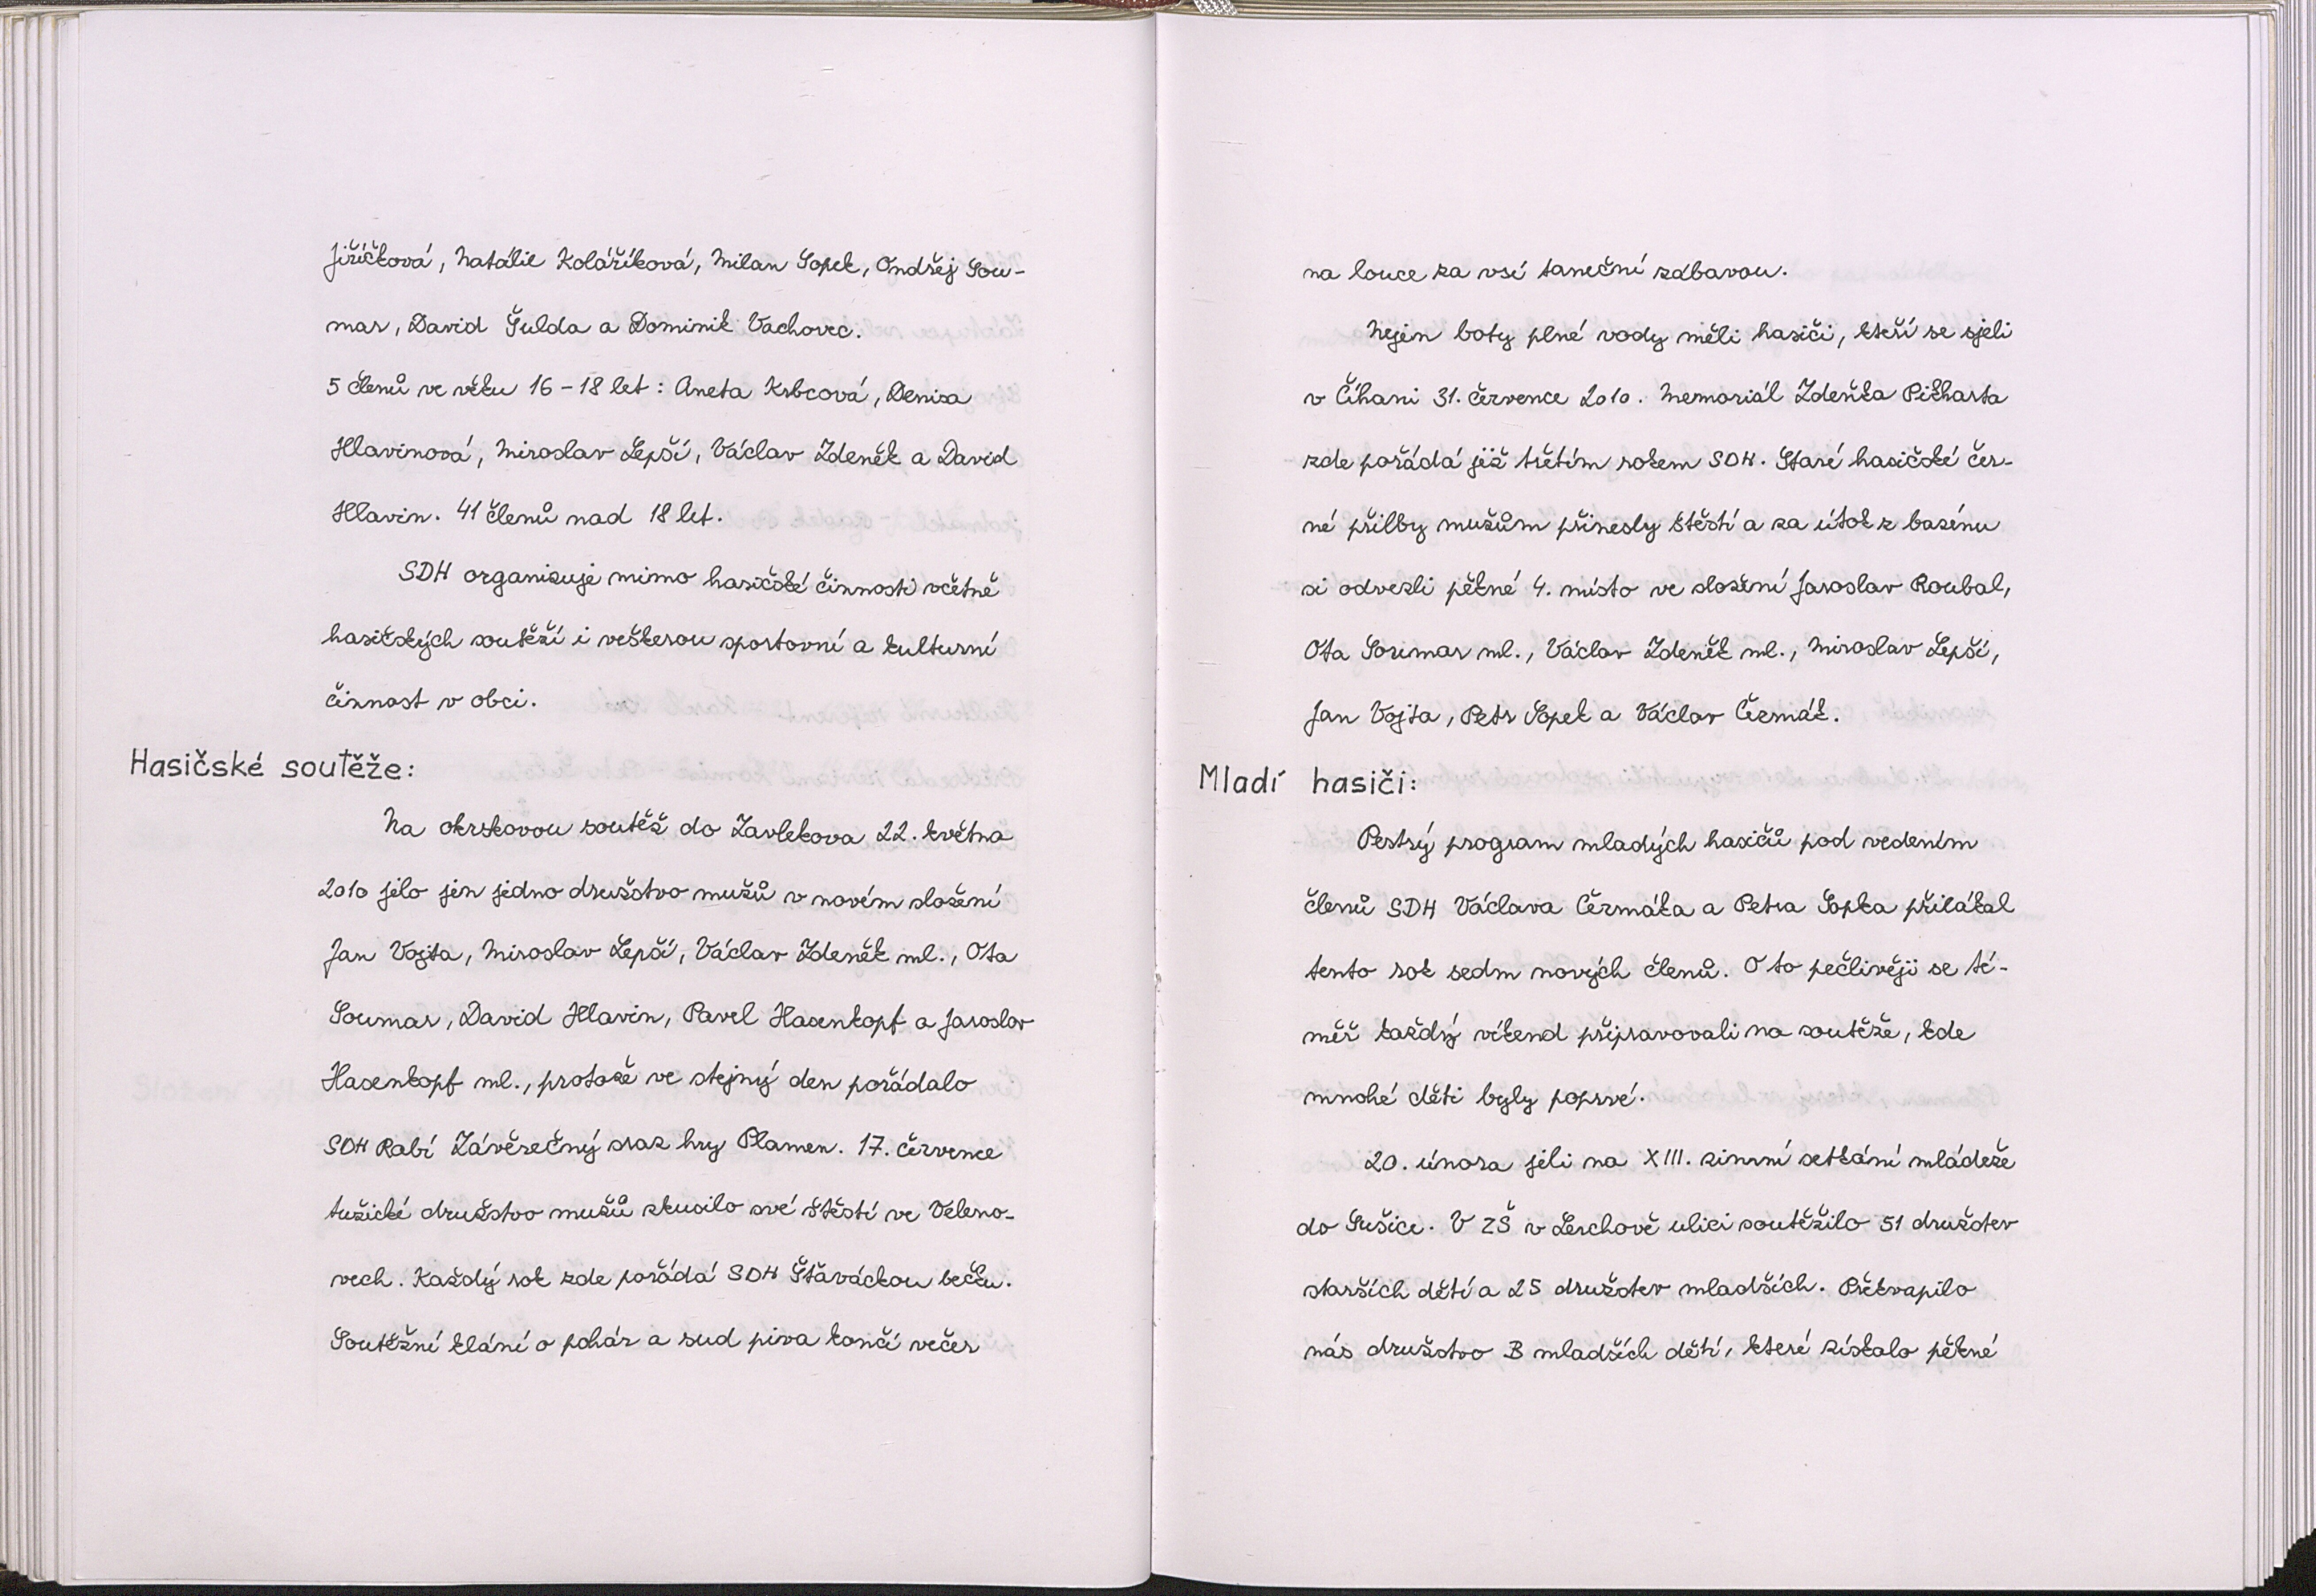 Jiříčková, Natálie Koláříková, Milan Sopek, Ondřej Sou-
mar, David Šulda a Dominik Vachovec.
5 členů ve věku 16-18 let: Aneta Krbcová, Denisa
Hlavinová, Miroslav Lepší, Václav Zdeněk a David
Hlavin. 41 členů nad 18 let.
SDH organizuje mimo hasičské činnosti včetně
hasičských soutěží i veškerou sportovní a kulturní
činnost v obci.
Hasičské soutěže:
Na okrskovou soutěž do Zavlekova 22. května
2010 jelo jen jedno družstvo mužů v novém složení
Jan Vojta, Miroslav Lepší, Václav Zdeněk ml., Ota
Soumar, David Hlavin, Pavel Hasenkopf a Jaroslav
Hasenkopf ml., protože ve stejný den pořádalo
SDH Rabí Závěrečný sraz hry Plamen. 17. července
tužické družstvo mužů zkusilo své štěstí ve Veleno-
vech. Každý rok zde pořádá SDH Šťáváckou bečku.
Soutěžní klání o pohár a sud piva končí večer
na louce za vsí taneční zábavou.
Nejen boty plné vody měli hasiči, kteří se sjeli
v Číhani 31. července 2010. Memoriál Zdeňka Pitharta
zde pořádá již třetím rokem SDH. Staré hasičské čer-
né přilby mužům přinesly štěstí a za útok z bazénu
si odvezli pěkné 4. místo ve složení Jaroslav Roubal,
Ota Soumar ml., Václav Zdeněk ml., Miroslav Lepší,
Jan Vojta, Petr Sopek a Václav Čermák.
Mladí hasiči:
Pestrý program mladých hasičů pod vedením
členů SDH Václava Čermáka a Petra Sopka přilákal
tento rok sedm nových členů. O to pečlivěji se té-
měř každý víkend připravovali na soutěže, kde
mnohé děti byly poprvé.
20. února jeli na XIII. zimní setkání mládeže
do Sušice. V ZŠ v Lerchově ulici soutěžilo 51 družstev
starších dětí a 25 družstev mladších. Překvapilo
nás družstvo B mladších dětí, které získalo pěkné